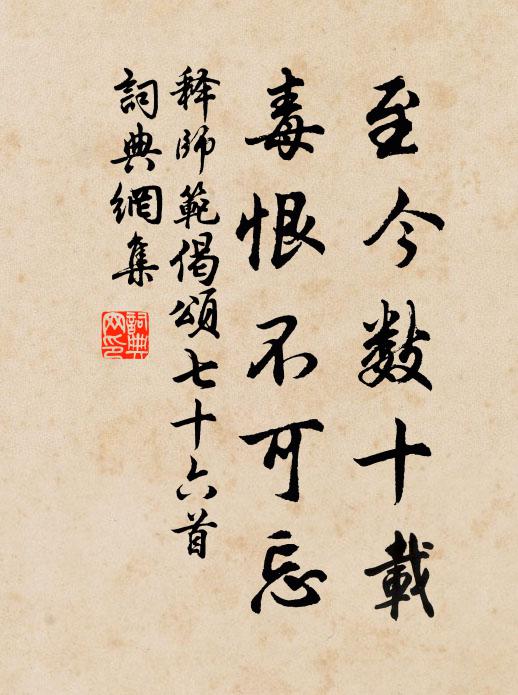 至今数十載
毒恨不可忘
释師範偈頌七十六首
詞典網集
詞典
网印